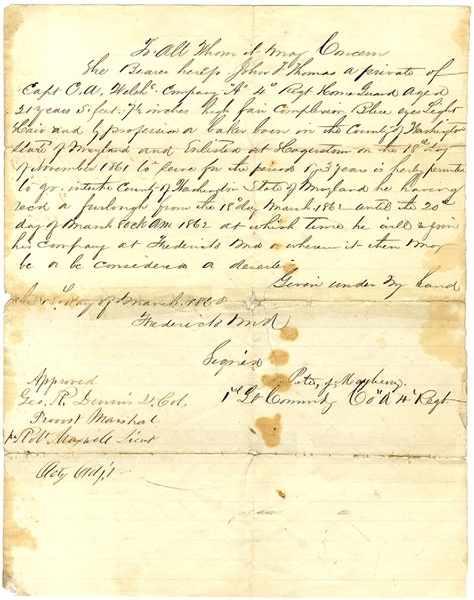 To All Whom it may Concern
The Bearer hereof John F Thomas a private of
Capt O. A. Welch Company A" 4" Regt Home Guard Aged
21 years 5 feet 7½ inches high fair complexion Blue eyes Light
Hair and by profession a baker born in the County of Washington
State of Maryland and Enlisted at Hagerstown on the 18th day
of November 1861 to serve for the period of 3 years is hereby permited
to go into the County of Washington State of Maryland he having
recd a furlough from the 18th day March 1862 until the 20th
day of March 8 ock Am 1862 at which time he will rejoin
his Company at Frederick Md or wherever it then may
be or be considered a deserter
Given under My hand
day of March 186
Frederick Md
Signed
Approved
Geo. R. Dennis Lt. Col.
Provost Marshal
Robt Maxwell Lieut
Actg Adjt
1st Lt Commdg Co "A" 4" Regt